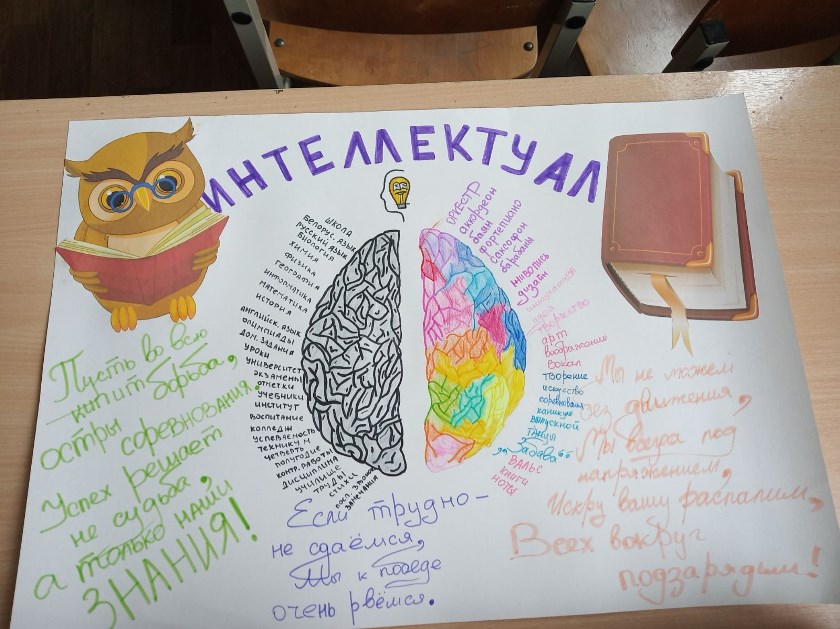 ИНТЕЛЛЕКТУАЛ
ART
ШКОЛА
БЕЛОРУС. ЯЗЫК
РУССКИЙ ЯЗЫК
БИОЛОГИЯ
ХИМИЯ
ФИЗИКА
ГЕОГРАФИЯ
ИНФОРМАТИКА
МАТЕМАТИКА
ИСТОРИЯ
АНГЛИЙСК. ЯЗЫК
ОЛИМПИАДЫ
ДОМ. ЗАДАНИЯ
УРОКИ
УНИВЕРСИТЕТ
ЭКЗАМЕНЫ
ОТМЕТКИ
УЧЕБНИКИ
ИНСТИТУТ
ВОСПИТАНИЕ
КОЛЛЕДЖ
УСПЕВАЕМОСТЬ
ТЕХНИКУМ
ЧЕТВЕРТЬ
ПОЛУГОДИЕ
КОНТР. РАБОТЫ
ДИСЦИПЛИНА
УЧИЛИЩЕ
ТРУДЫ
СТИХИ
ЗАМЕЧАНИЯ
ОРКЕСТР
аккордеон
баян
фортепиано
саксофон
барабаны
живопись
дизайн
творчество
арт
воображение
вокал
творение
искусство
соревнования
каникулы
выпускной
танцы
Забава
ВАЛЬС
книги
ноты
Пусть во всю
кипит борьба,
остры соревнования.
Успех решает
не судьба,
а только наши
ЗНАНИЯ!
Если трудно-
не сдаёмся,
Мы к победе
очень рвёмся.
Мы не можем
без движения,
Мы всегда под
напряжением,
Искру вашу распалим,
Всех вокруг
подзарядим!